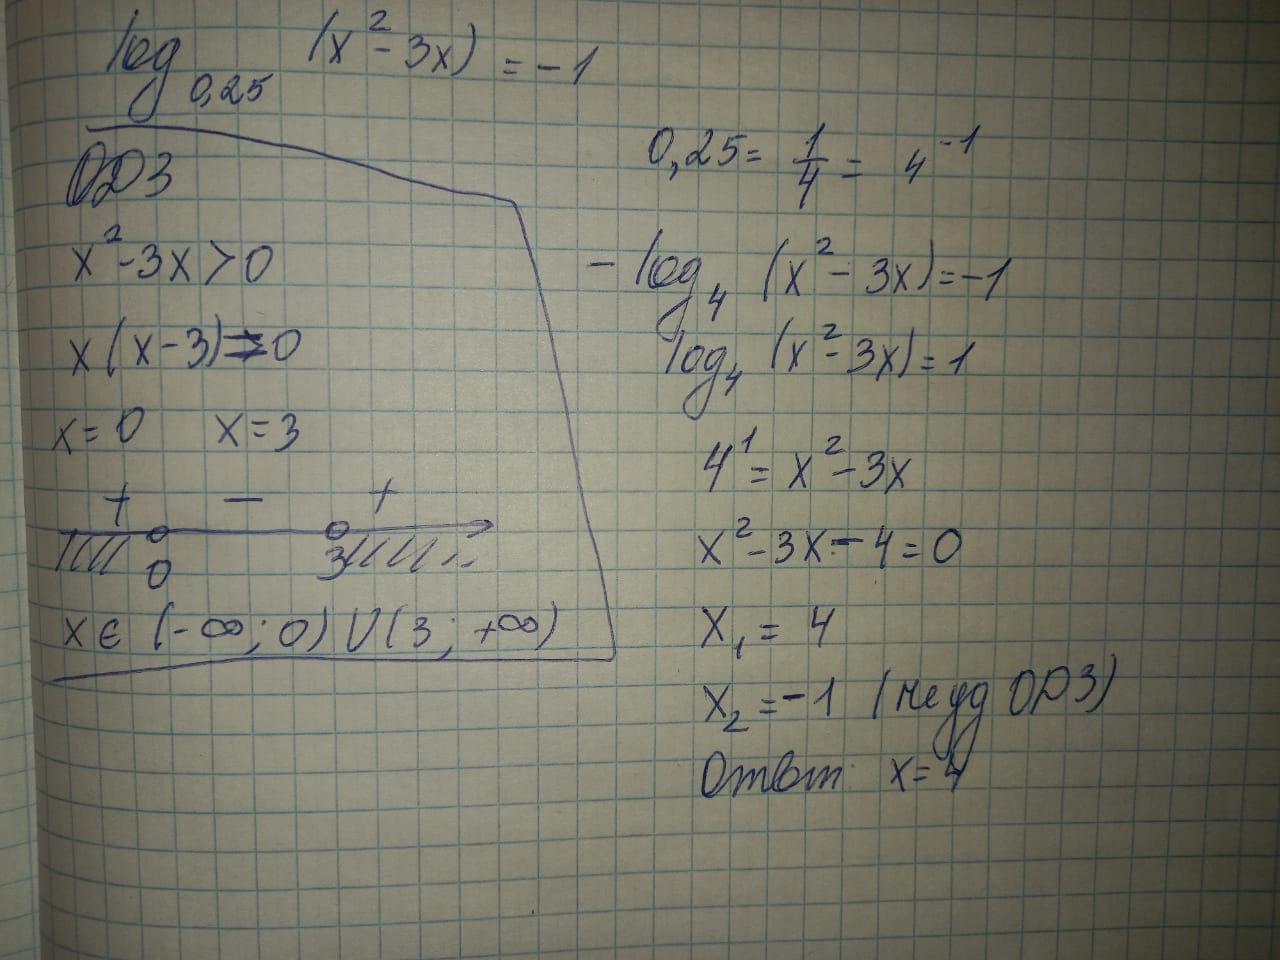 log₀,₂₅ (x² - 3x) = -1
ОДЗ
x² - 3x > 0
x (x - 3) > 0
x = 0 x = 3
+ - +
0 3
x ∈ (-∞; 0) U (3; +∞)
0,25 = 1/4 = 4⁻¹
- log₄ (x² - 3x) = -1
log₄ (x² - 3x) = 1
4¹ = x² - 3x
x² - 3x - 4 = 0
x₁ = 4
x₂ = -1 (не уд ОДЗ)
Ответ x = 4